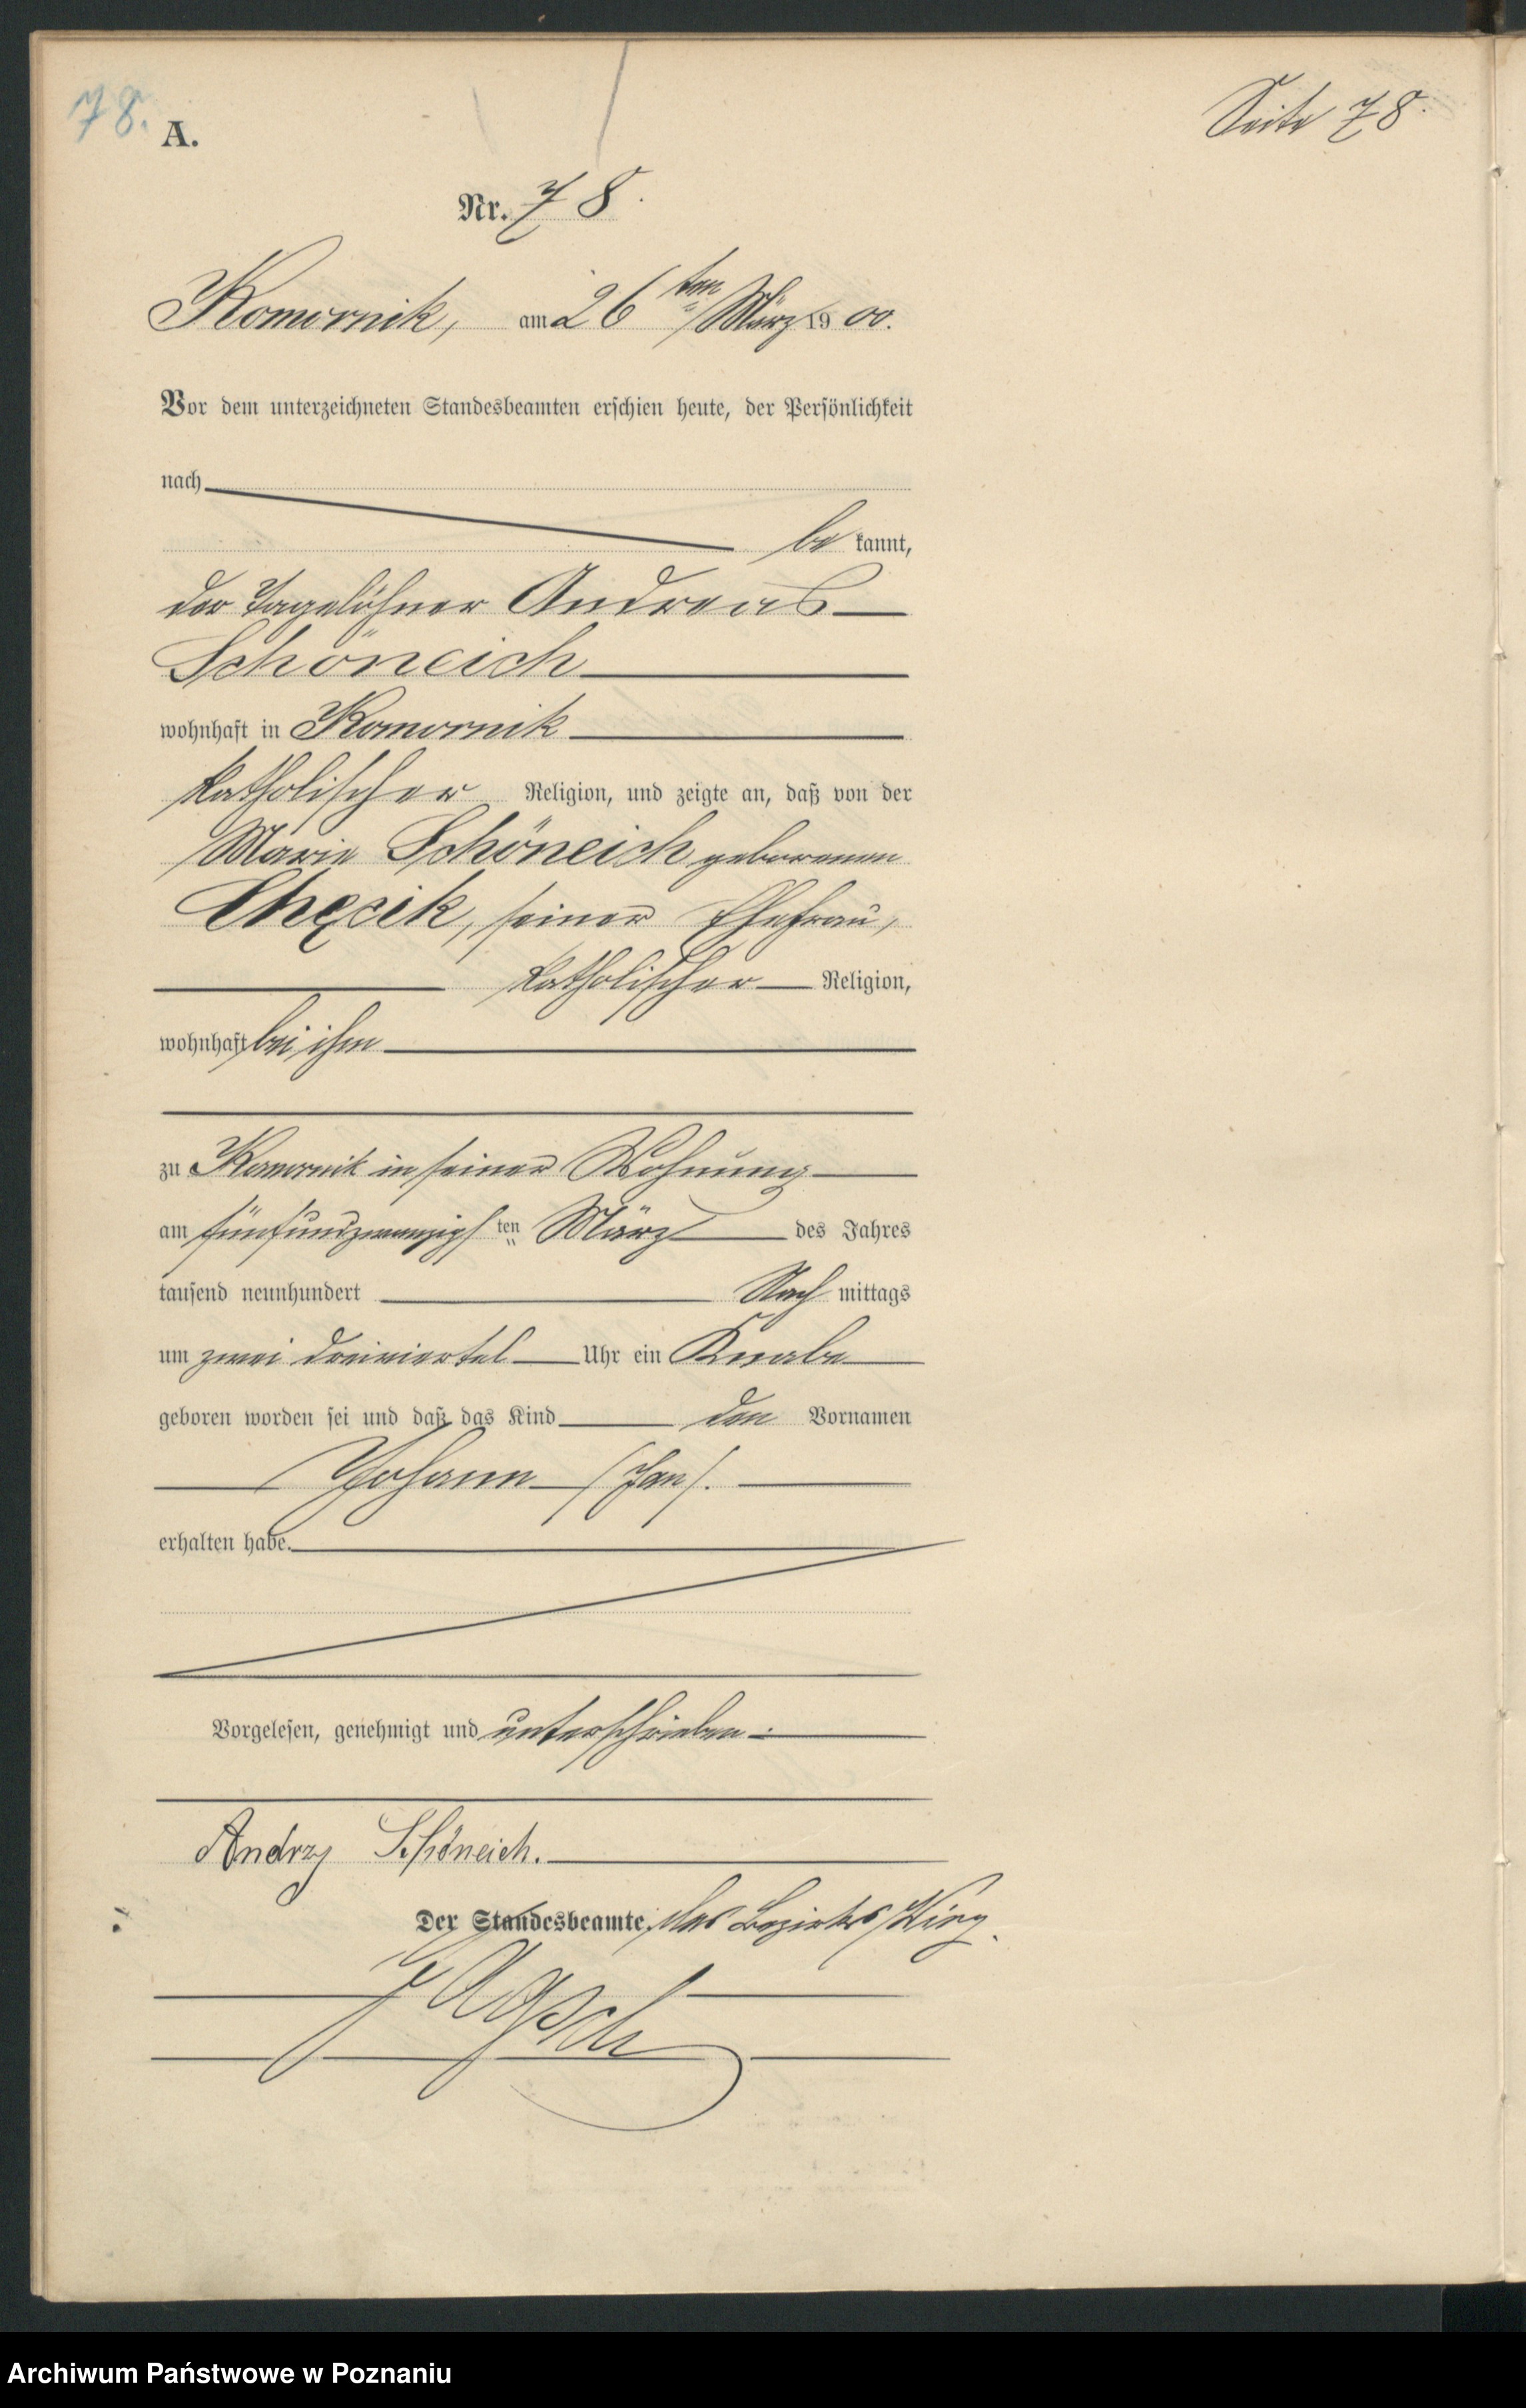 78.
A.
Seite 78.
Nr. 78.
Komornik, am 26ten März 1900.
Vor dem unterzeichneten Standesbeamten erschien heute, der Persönlichkeit
nach
be kannt,
der Tagelöhner Andreas
Schöneich
wohnhaft in Komornik
katholischer Religion, und zeigte an, daß von der
Marie Schöneich geborenen
Chęcik, seiner Ehefrau,
katholischer Religion,
wohnhaft bei ihm
zu Komornik in seiner Wohnung
am fünfundzwanzigsten März des Jahres
tausend neunhundert Nach mittags
um zwei dreiviertel Uhr ein Knabe
geboren worden sei und daß das Kind den Vornamen
Johann (Jan).
erhalten habe.
Vorgelesen, genehmigt und unterschrieben.
Andrzy Schöneich.
Der Standesbeamte des Bezirks Wiry.
Archiwum Państwowe w Poznaniu